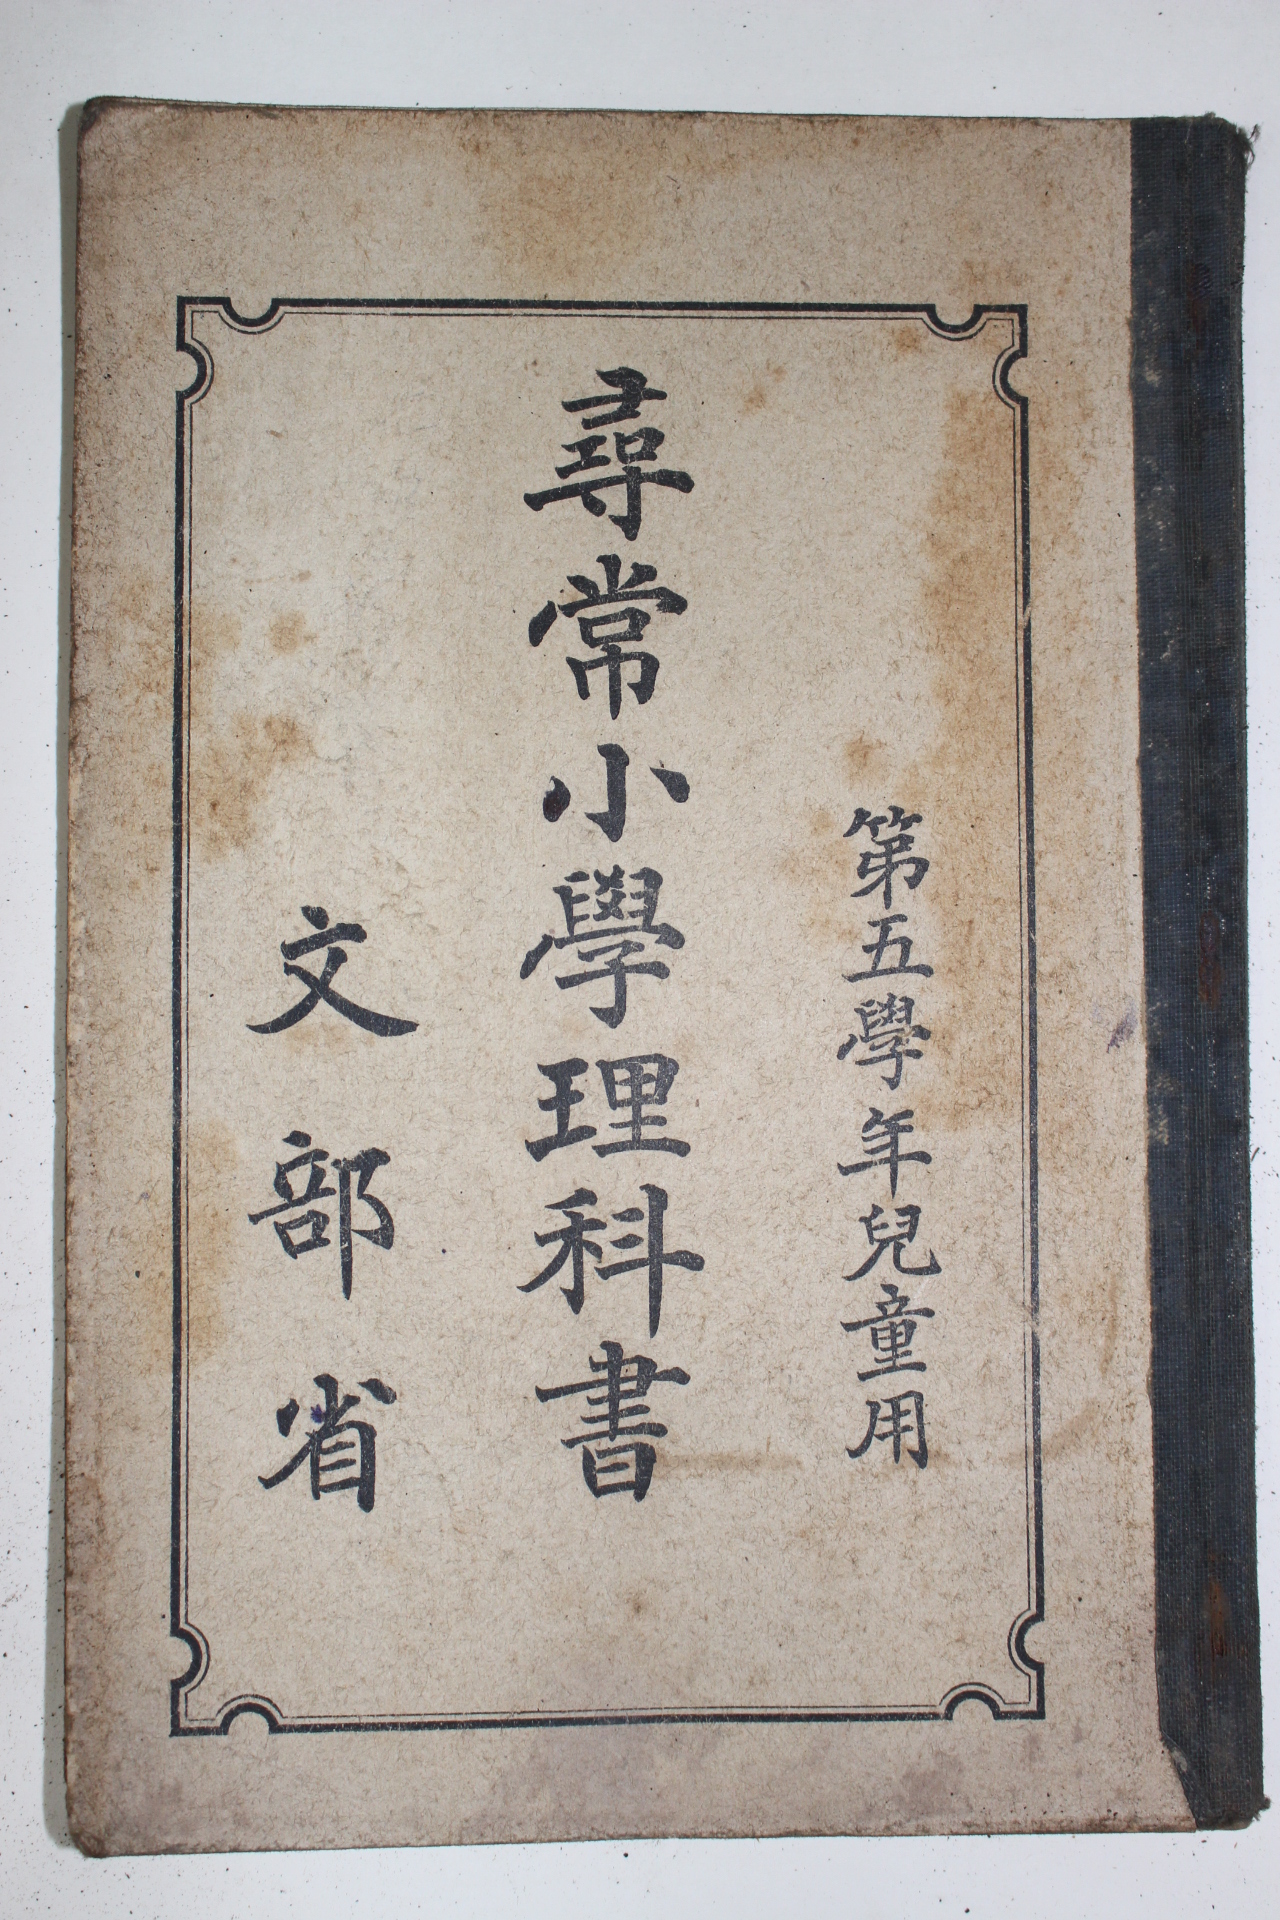 第五學年兒童用
尋常小學理科書
文部省